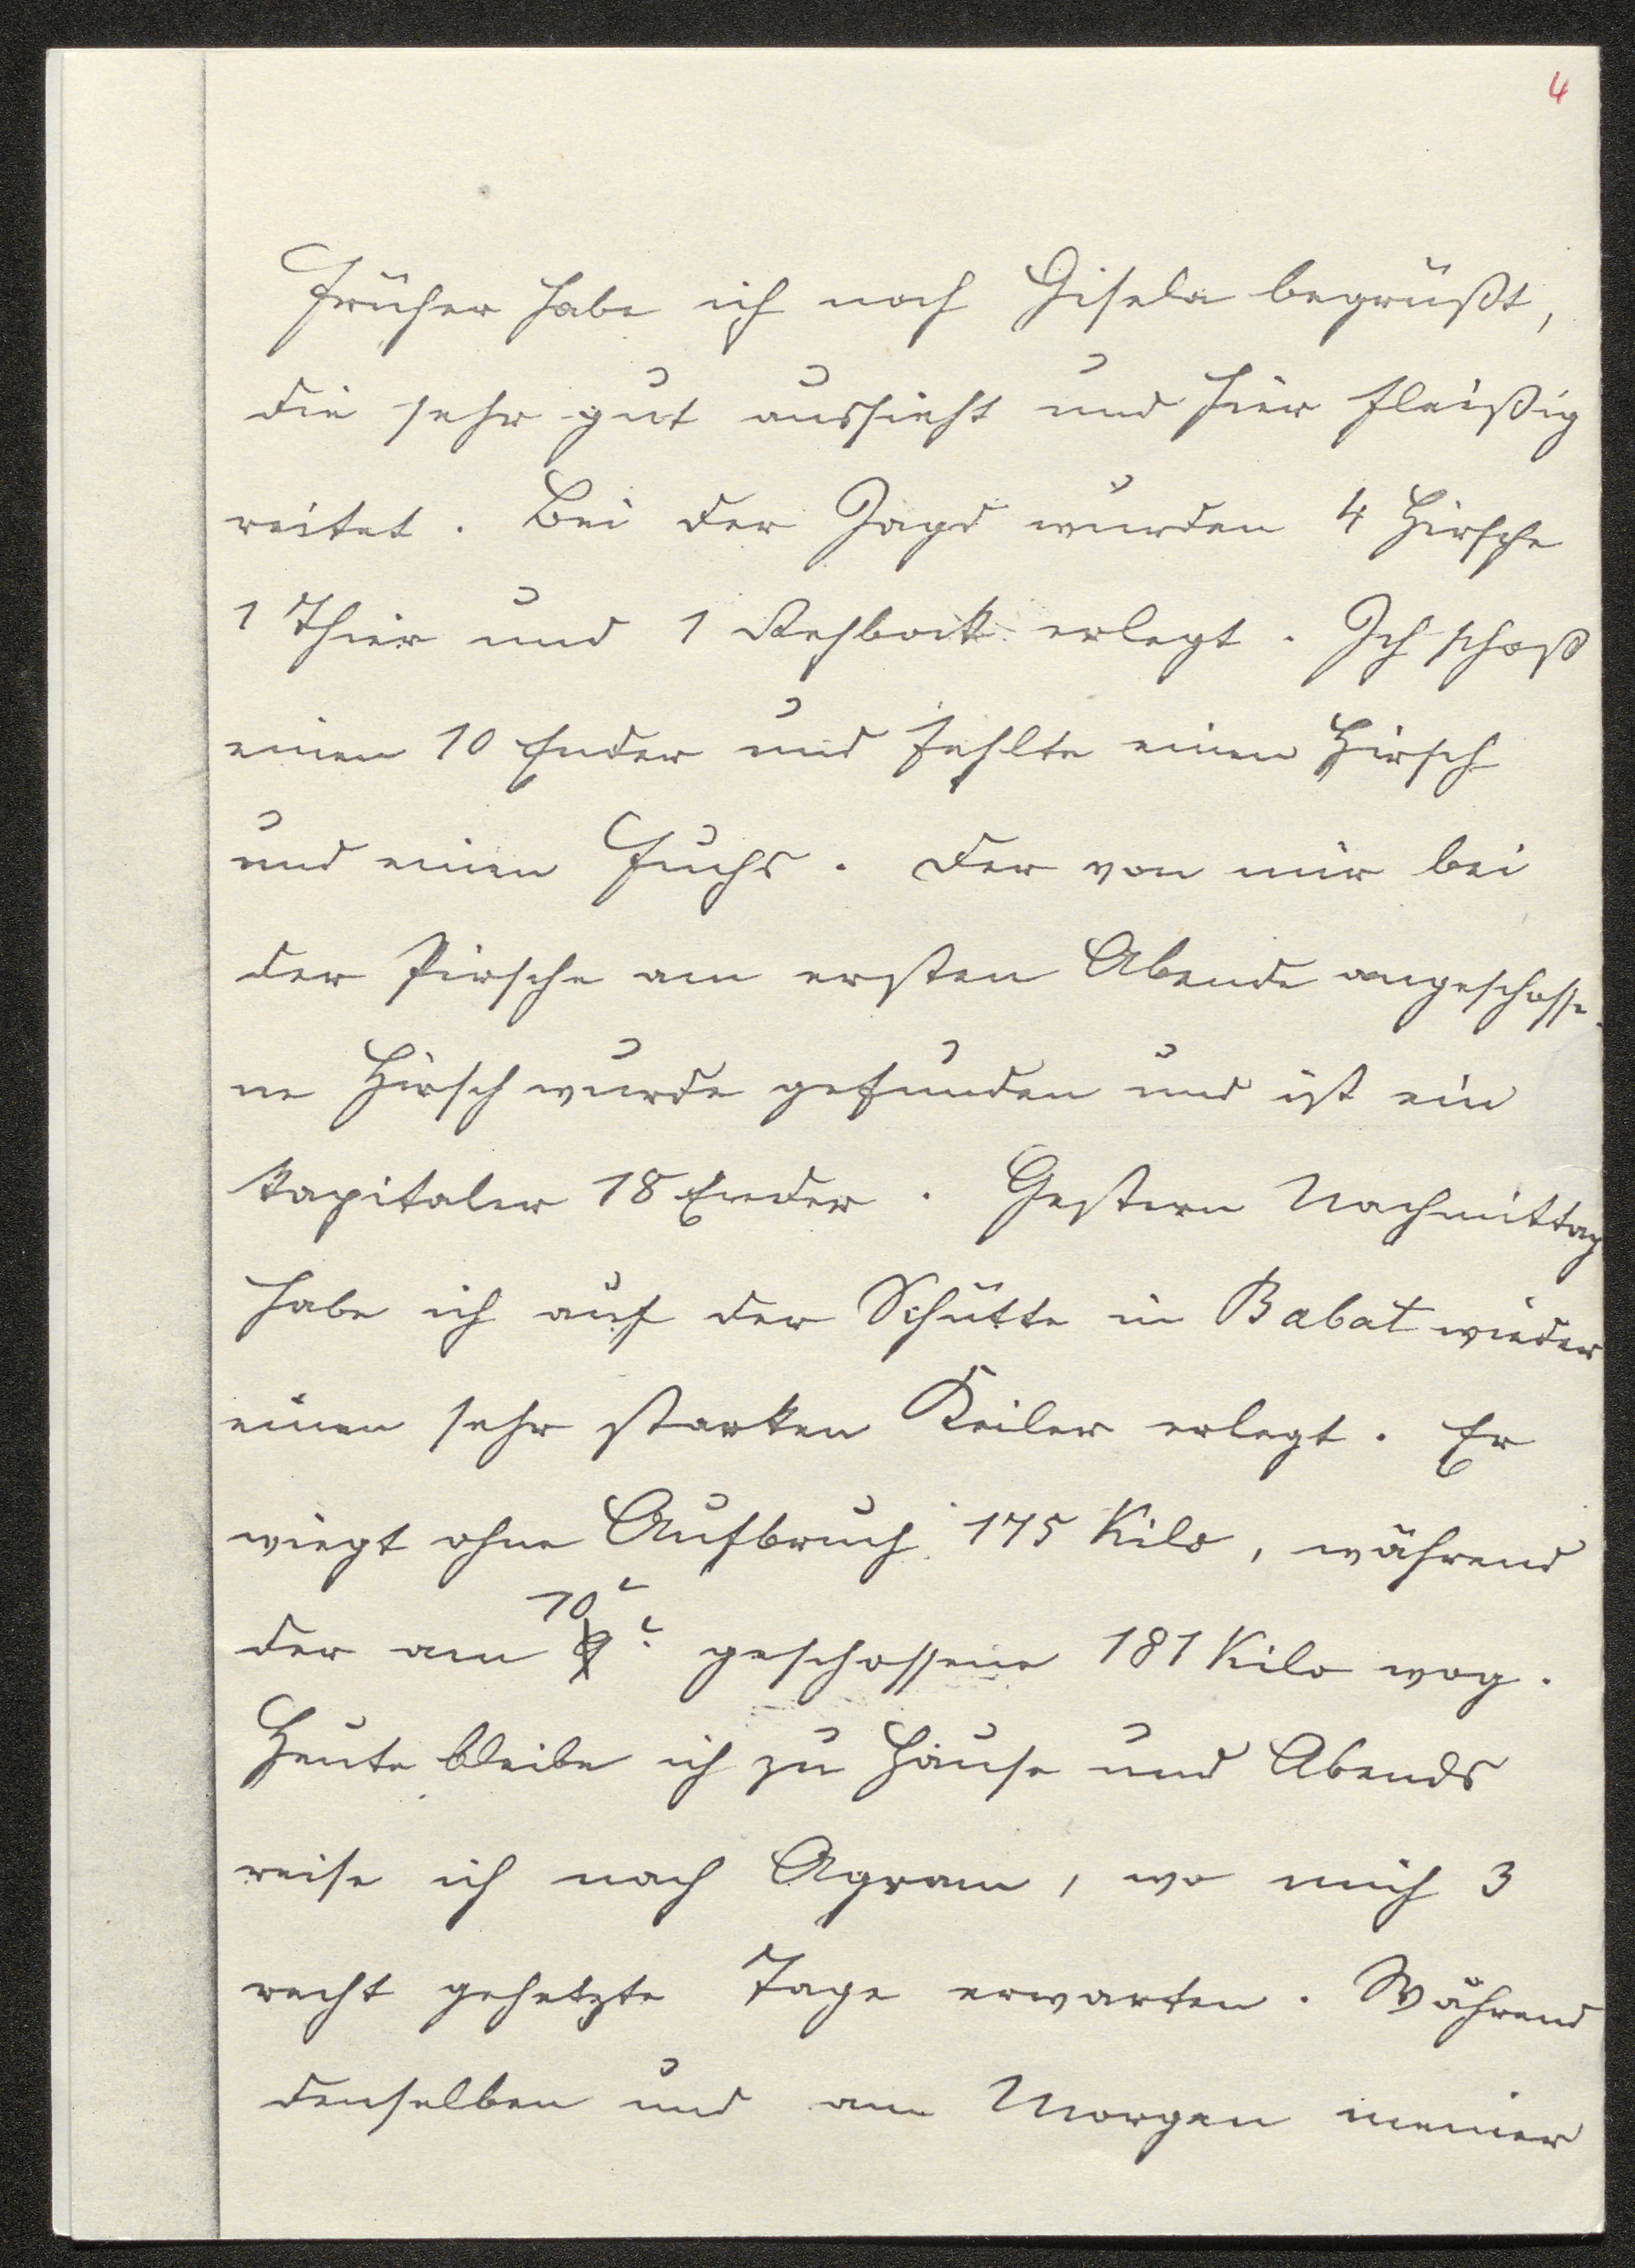 4
Früher habe ich noch Gisela begrüßt,
die sehr gut aussieht und hier fleißig
reitet. Bei der Jagd wurden 4 Hirsche
1 Thier und 1 Rehbock erlegt. Ich schoß
einen 10 Ender und fehlte einen Hirsch
und einen Fuchs. Der von mir bei
der Pirsche am ersten Abende angeschosse-
ne Hirsch wurde gefunden und ist ein
kapitaler 18 Ender. Gestern Nachmittag
habe ich auf der Schütte in Babat wieder
einen sehr starken Keiler erlegt. Er
wiegt ohne Aufbruch 175 Kilo, während
10t
der am 9t geschossene 181 Kilo wog.
Heute bleibe ich zu Hause und Abends
reise ich nach Agram, wo mich 3
recht gehetzte Tage erwarten. Während
denselben und am Morgen meiner